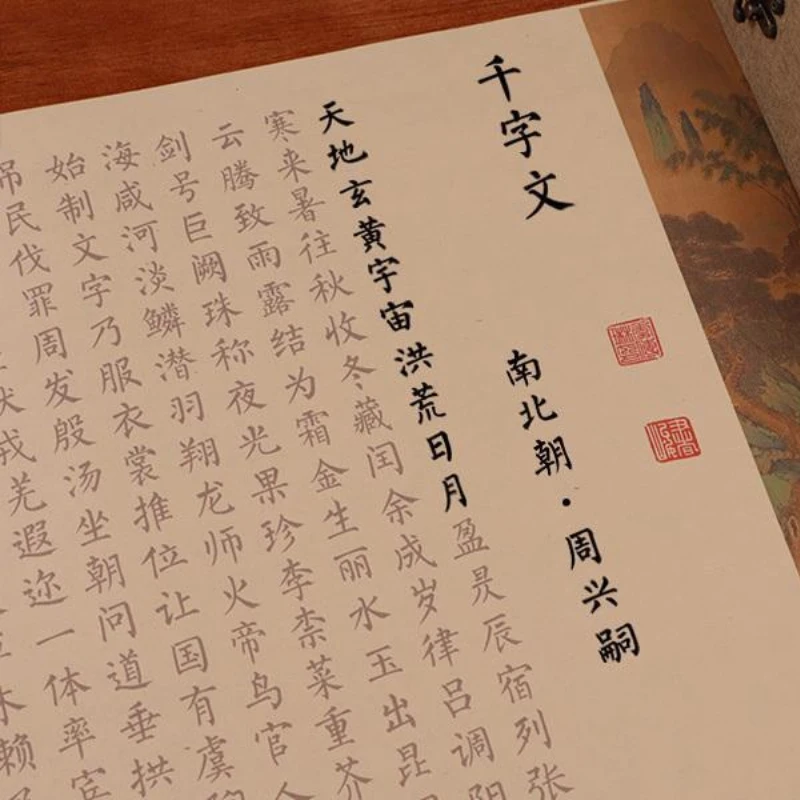 千字文
南北朝·周兴嗣
天地玄黄宇宙洪荒日月盈昃辰宿列张
寒来暑往秋收冬藏闰余成岁律吕调阳
云腾致雨露结为霜金生丽水玉出昆
剑号巨阙珠称夜光果珍李柰菜重芥
海咸河淡鳞潜羽翔龙师火帝鸟官人
始制文字乃服衣裳推位让国有虞陶
吊民伐罪周发殷汤坐朝问道垂拱
伏戎羌遐迩一体率宾
木赖